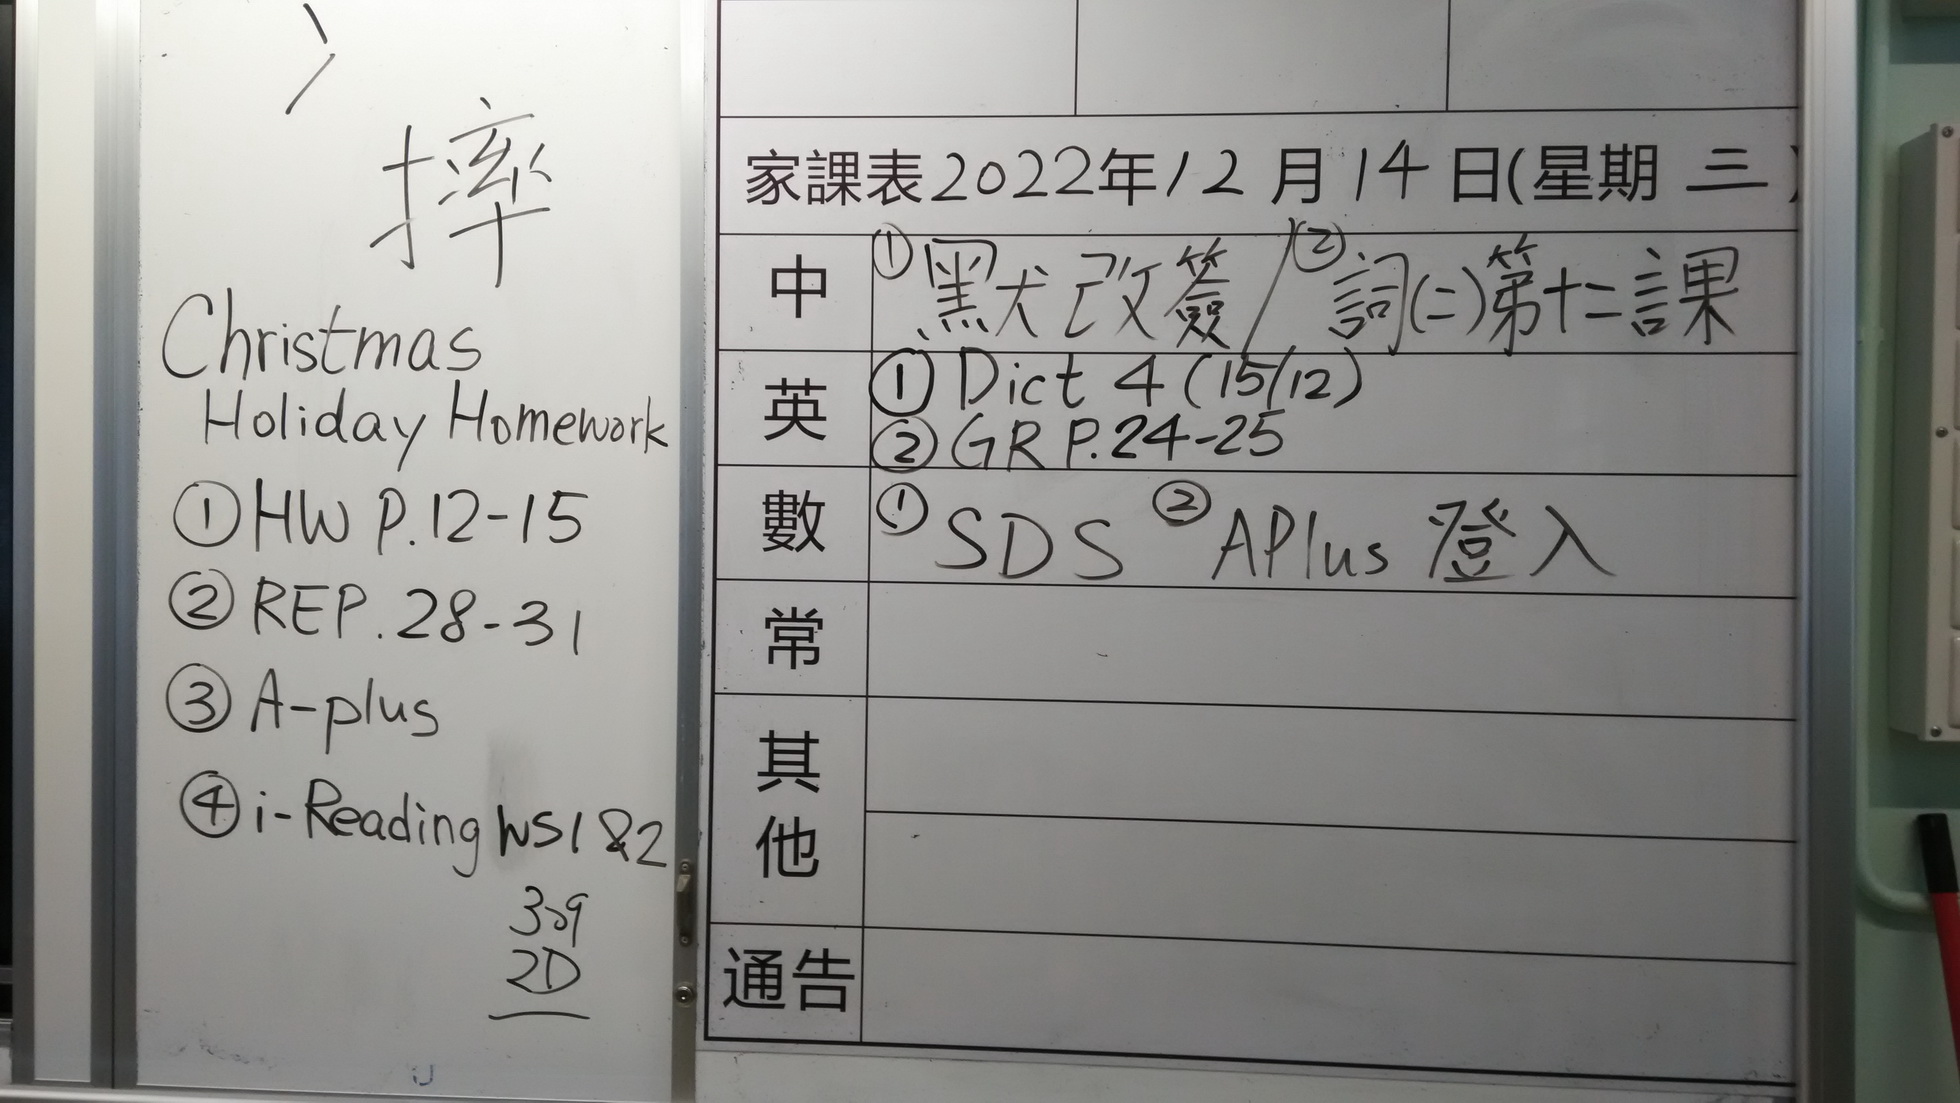 摔
Christmas
Holiday Homework
① HW P.12-15
② REP.28-31
③ A-plus
④ i-Reading WS1 &2
2D
家課表2022年12月14日(星期三)
中 ①默改簽/②詞(二)第十二課
英 ① Dict 4 (15/12)
② GR P.24-25
數 ①SDS ②APlus 登入
常
其他
通告